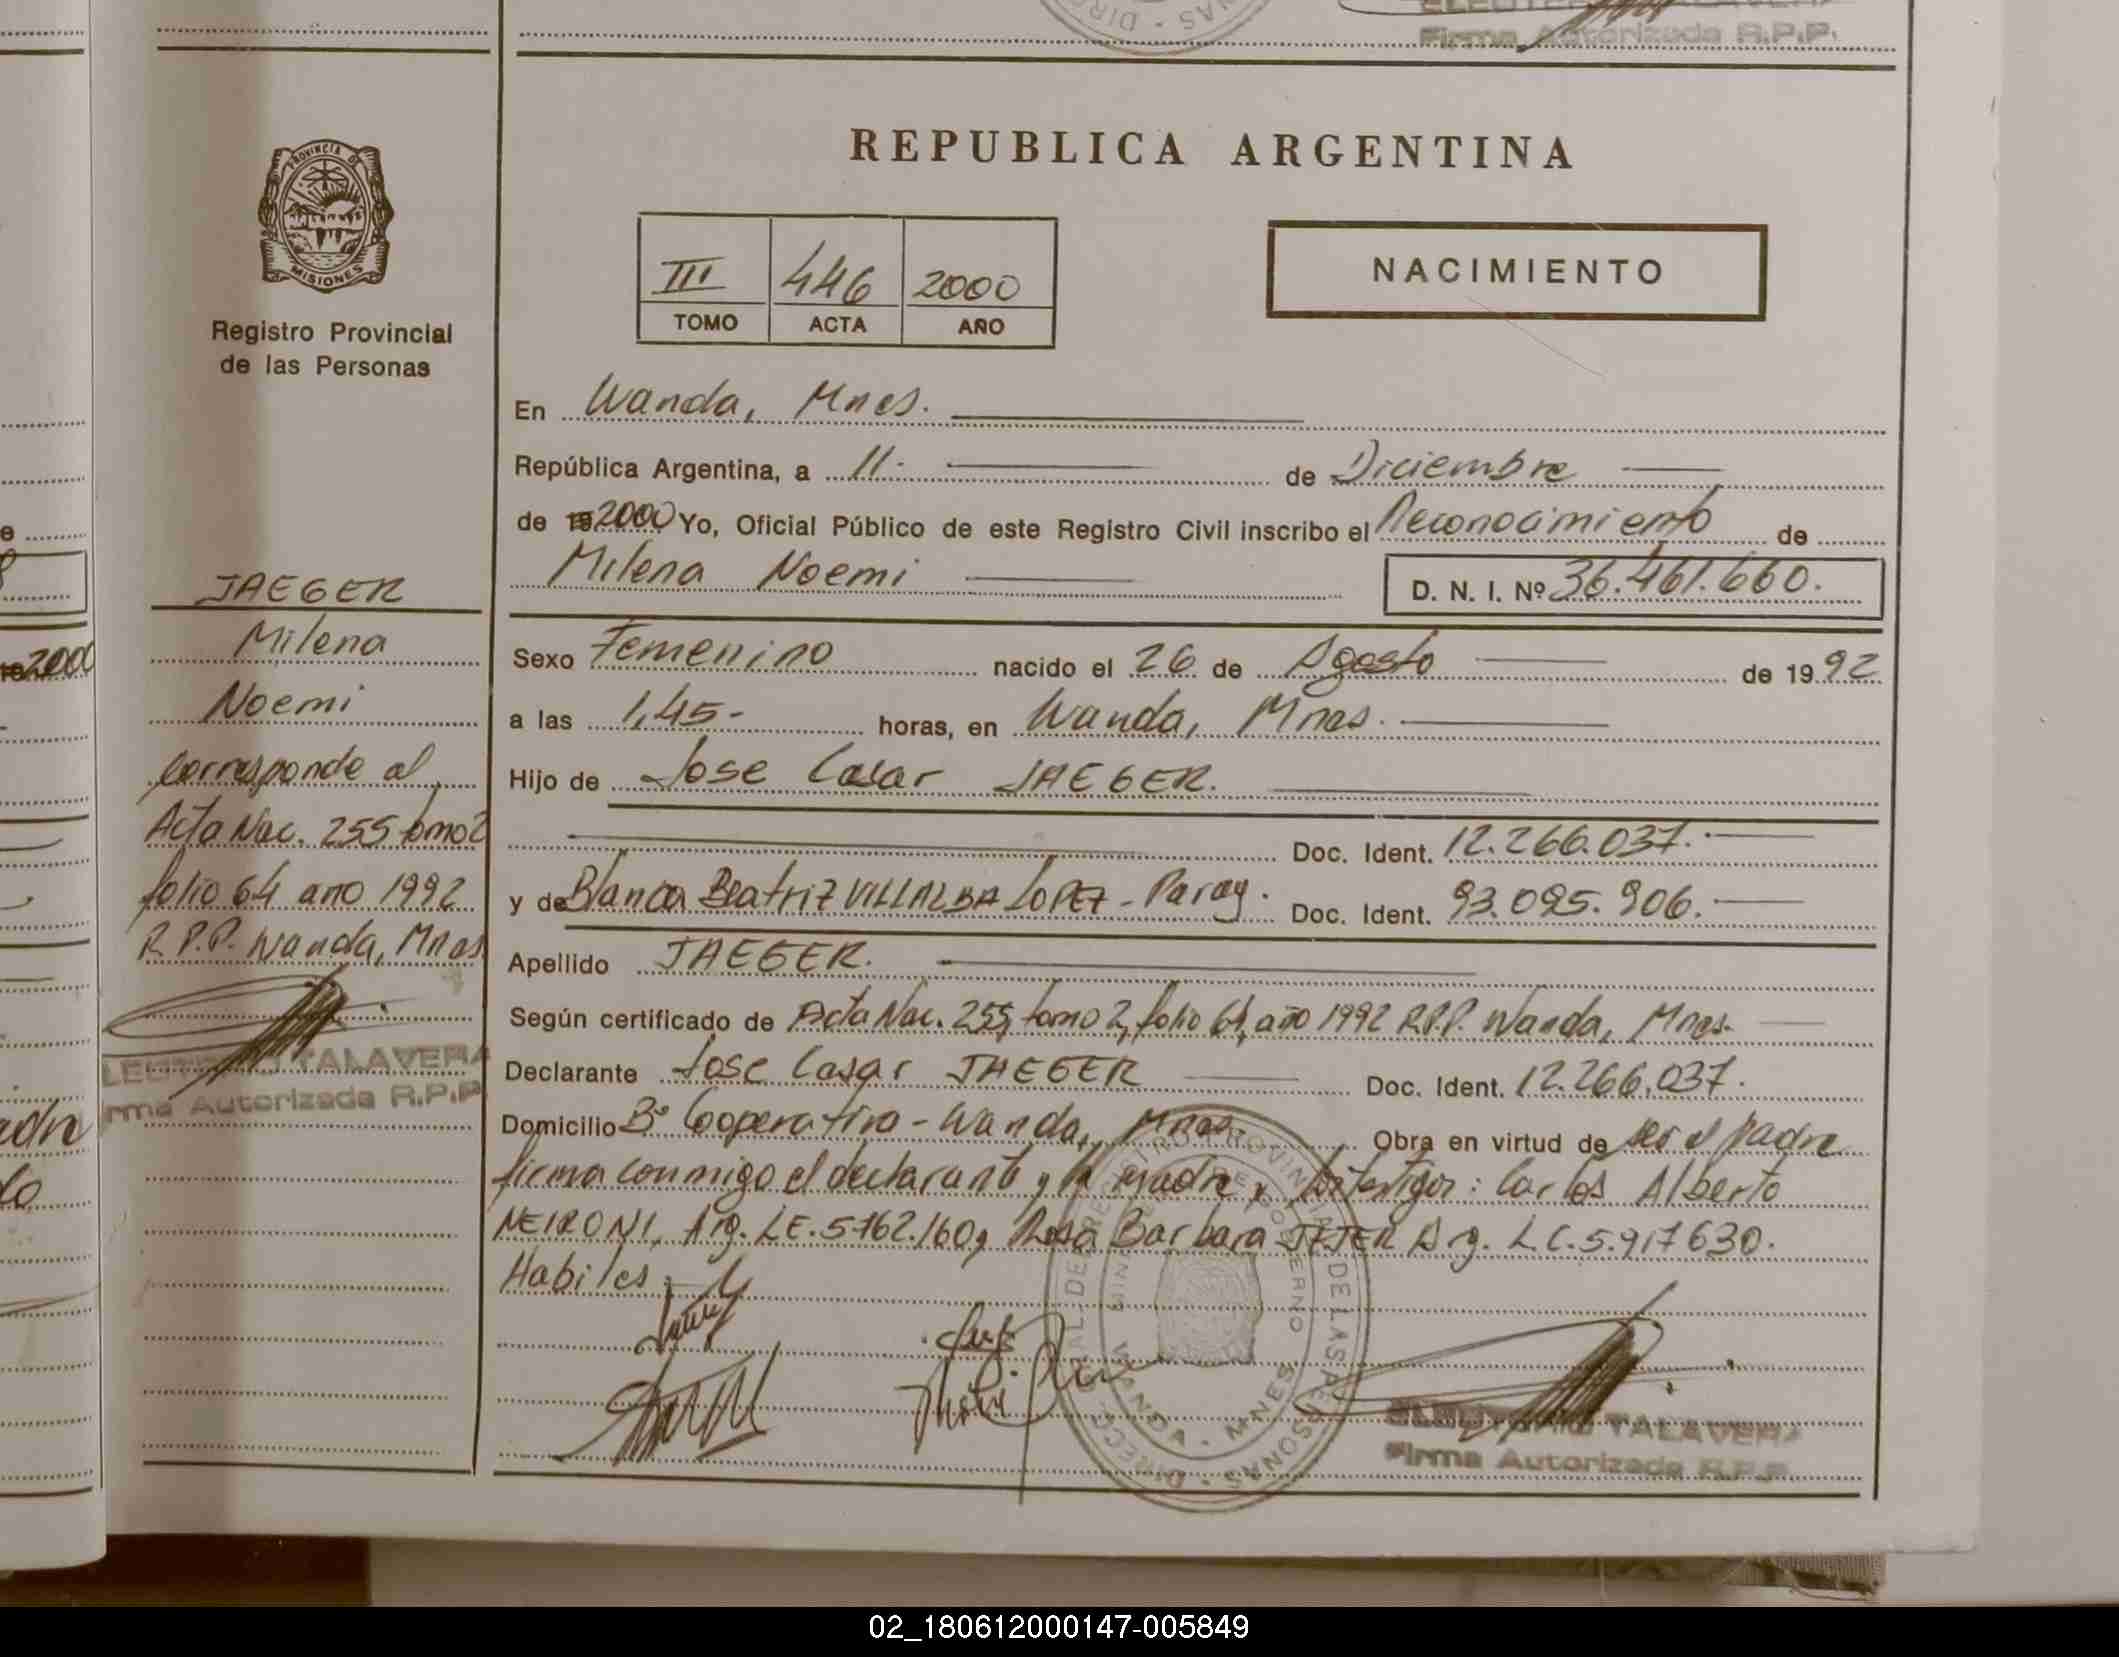 Firma Autorizada R.P.P.
PROVINCIA DE
MISIONES
Registro Provincial
de las Personas
JAEGER
Milena
Noemi
Corresponde al
Acta Nac. 255 tomo 2
folio 64 año 1992
R.P.P. Wanda, Mnes
TALAVERA
Autorizada R.P.P
REPUBLICA ARGENTINA
III 446 2000
TOMO ACTA AÑO
NACIMIENTO
En Wanda, Mnes.
República Argentina, a 11. de Diciembre
de 19 2000 Yo, Oficial Público de este Registro Civil inscribo el Reconocimiento de
Milena Noemi D. N. I. Nº 36.461.660.
Sexo Femenino nacido el 26 de Agosto de 19 92
a las 1,45- horas, en Wanda, Mnes.
Hijo de Jose Cesar JAEGER.
Doc. Ident. 12.266.037.
y de Blanca Beatriz VILLALBA LOPEZ - Paray. Doc. Ident. 93.095.906.
Apellido JAEGER.
Según certificado de Acta Nac. 255, tomo 2, folio 64, año 1992 R.P.P. Wanda, Mnes.
Declarante Jose Cesar JAEGER Doc. Ident. 12.266.037.
Domicilio Bº Cooperativa - Wanda, Mnes. Obra en virtud de ser el padre
firma conmigo el declarante y la madre, testigos: Carlos Alberto
NEIRONI, Arg. L.E. 5.762.160 y Rosa Barbara TEJER Arg. L.C. 5.917630.
Habiles
WANDA - MNES
TALAVERA
Firma Autorizada R.P.P.
02_180612000147-005849